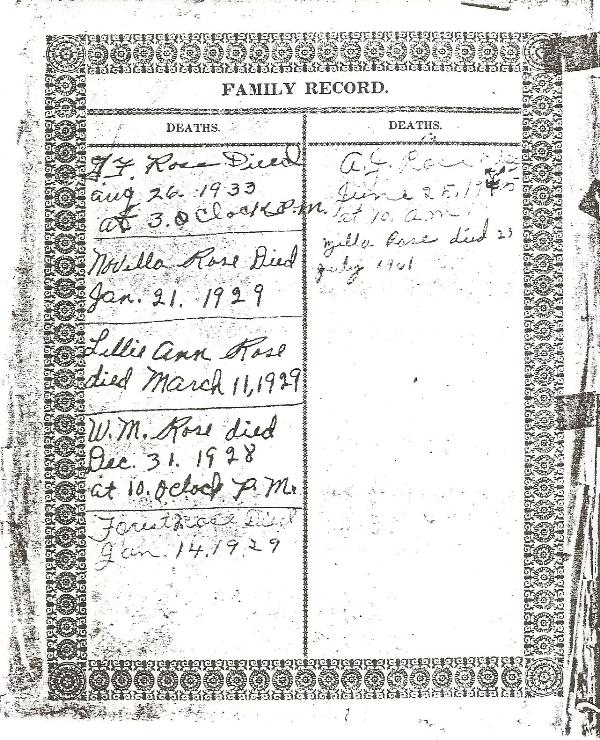 FAMILY RECORD.
DEATHS.
Rose Died
aug 26 1933
at 3. O Clock P.m.
Novella Rose Died
Jan. 21. 1929
Lillie Ann Rose
died March 11, 1929
W. M. Rose died
Dec. 31. 1928
at 10. Oclock P. M.
Forest Rose Died
Jan. 14. 1929
DEATHS.
A. J. Rose
June 25, 19
at 10. a. m.
Rose died 23
july 1961